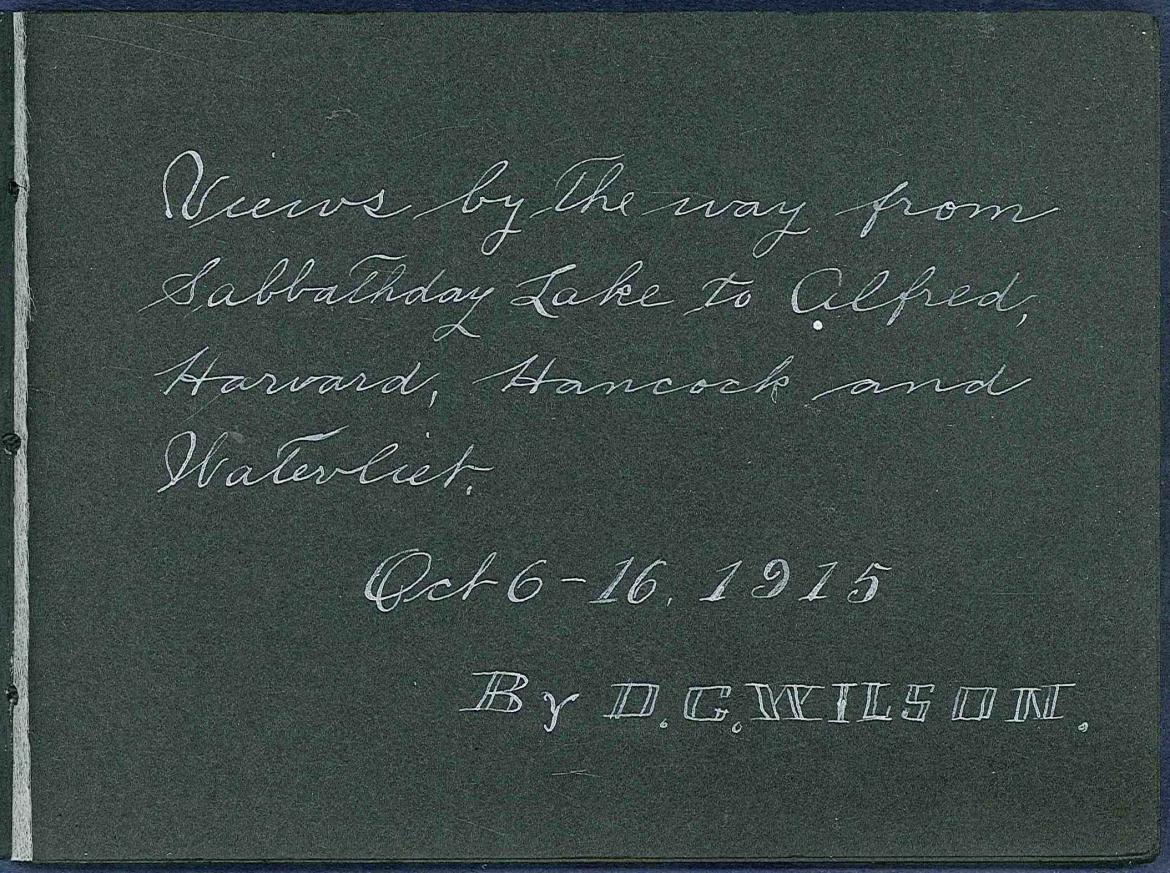 Views by the way from
Sabbathday Lake to Alfred,
Harvard, Hancock and
Watervliet.
Oct 6-16, 1915
By D. C. WILSON.